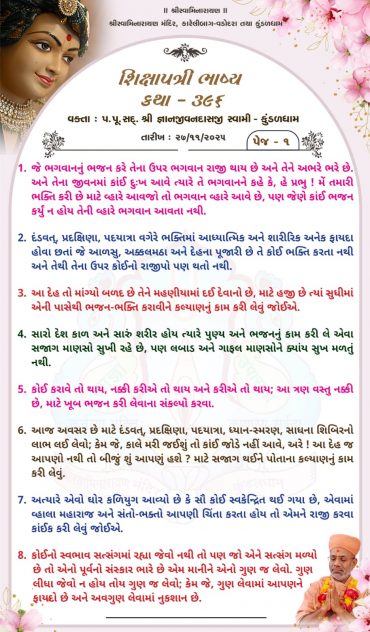 ॥ શ્રીસ્વામિનારાયણ ॥
શ્રીસ્વામિનારાયણ મંદિર, કારેલીબાગ-વડોદરા તથા કુંડળધામ
શિક્ષાપત્રી ભાષ્ય
કથા - ૩૯૬
વક્તા : પ.પૂ.સદ્. શ્રી જ્ઞાનજીવનદાસજી સ્વામી - કુંડળધામ
તારીખ : ૨૭/૧૧/૨૦૨૫
પેજ - ૧
1. જે ભગવાનનું ભજન કરે તેના ઉપર ભગવાન રાજી થાય છે અને તેને અભરે ભરે છે.
અને તેના જીવનમાં કાંઈ દુઃખ આવે ત્યારે તે ભગવાનને કહે કે, હે પ્રભુ ! મેં તમારી
ભક્તિ કરી છે માટે વ્હારે આવજો તો ભગવાન વ્હારે આવે છે, પણ જેણે કાંઈ ભજન
કર્યું ન હોય તેની વ્હારે ભગવાન આવતા નથી.
2. દંડવત્, પ્રદક્ષિણા, પદયાત્રા વગેરે ભક્તિમાં આધ્યાત્મિક અને શારીરિક અનેક ફાયદા
હોવા છતાં જે આળસુ, અક્કલમઠા અને દેહના પૂજારી છે તે કોઈ ભક્તિ કરતા નથી
અને તેથી તેના ઉપર કોઈનો રાજીપો પણ થતો નથી.
3. આ દેહ તો માંગ્યો બળદ છે તેને મહણીયામાં દઈ દેવાનો છે, માટે હજી છે ત્યાં સુધીમાં
એની પાસેથી ભજન-ભક્તિ કરાવીને કલ્યાણનું કામ કરી લેવું જોઈએ.
4. સારો દેશ કાળ અને સારું શરીર હોય ત્યારે પુણ્ય અને ભજનનું કામ કરી લે એવા
સજાગ માણસો સુખી રહે છે, પણ લબાડ અને ગાફલ માણસોને ક્યાંય સુખ મળતું
નથી.
5. કોઈ કરાવે તો થાય, નક્કી કરીએ તો થાય અને કરીએ તો થાય; આ ત્રણ વસ્તુ નક્કી
છે, માટે ખૂબ ભજન કરી લેવાના સંકલ્પો કરવા.
6. આજ અવસર છે માટે દંડવત્, પ્રદક્ષિણા, પદયાત્રા, ધ્યાન-સ્મરણ, સાધના શિબિરનો
લાભ લઈ લેવો; કેમ જે, કાલે મરી જઈશું તો કાંઈ જોડે નહીં આવે, અરે ! આ દેહ જ
આપણો નથી તો બીજું શું આપણું હશે ? માટે સજાગ થઈને પોતાના કલ્યાણનું કામ
કરી લેવું.
7. અત્યારે એવો ઘોર કળિયુગ આવ્યો છે કે સૌ કોઈ સ્વકેન્દ્રિત થઈ ગયા છે, એવામાં
વ્હાલા મહારાજ અને સંતો-ભક્તો આપણી ચિંતા કરતા હોય તો એમને રાજી કરવા
કાંઈક કરી લેવું જોઈએ.
8. કોઈનો સ્વભાવ સત્સંગમાં રહ્યા જેવો નથી તો પણ જો એને સત્સંગ મળ્યો
છે તો એનો પૂર્વનો સંસ્કાર ભારે છે એમ માનીને એનો ગુણ જ લેવો. ગુણ
લીધા જેવો ન હોય તોય ગુણ જ લેવો; કેમ જે, ગુણ લેવામાં આપણને
ફાયદો છે અને અવગુણ લેવામાં નુકશાન છે.